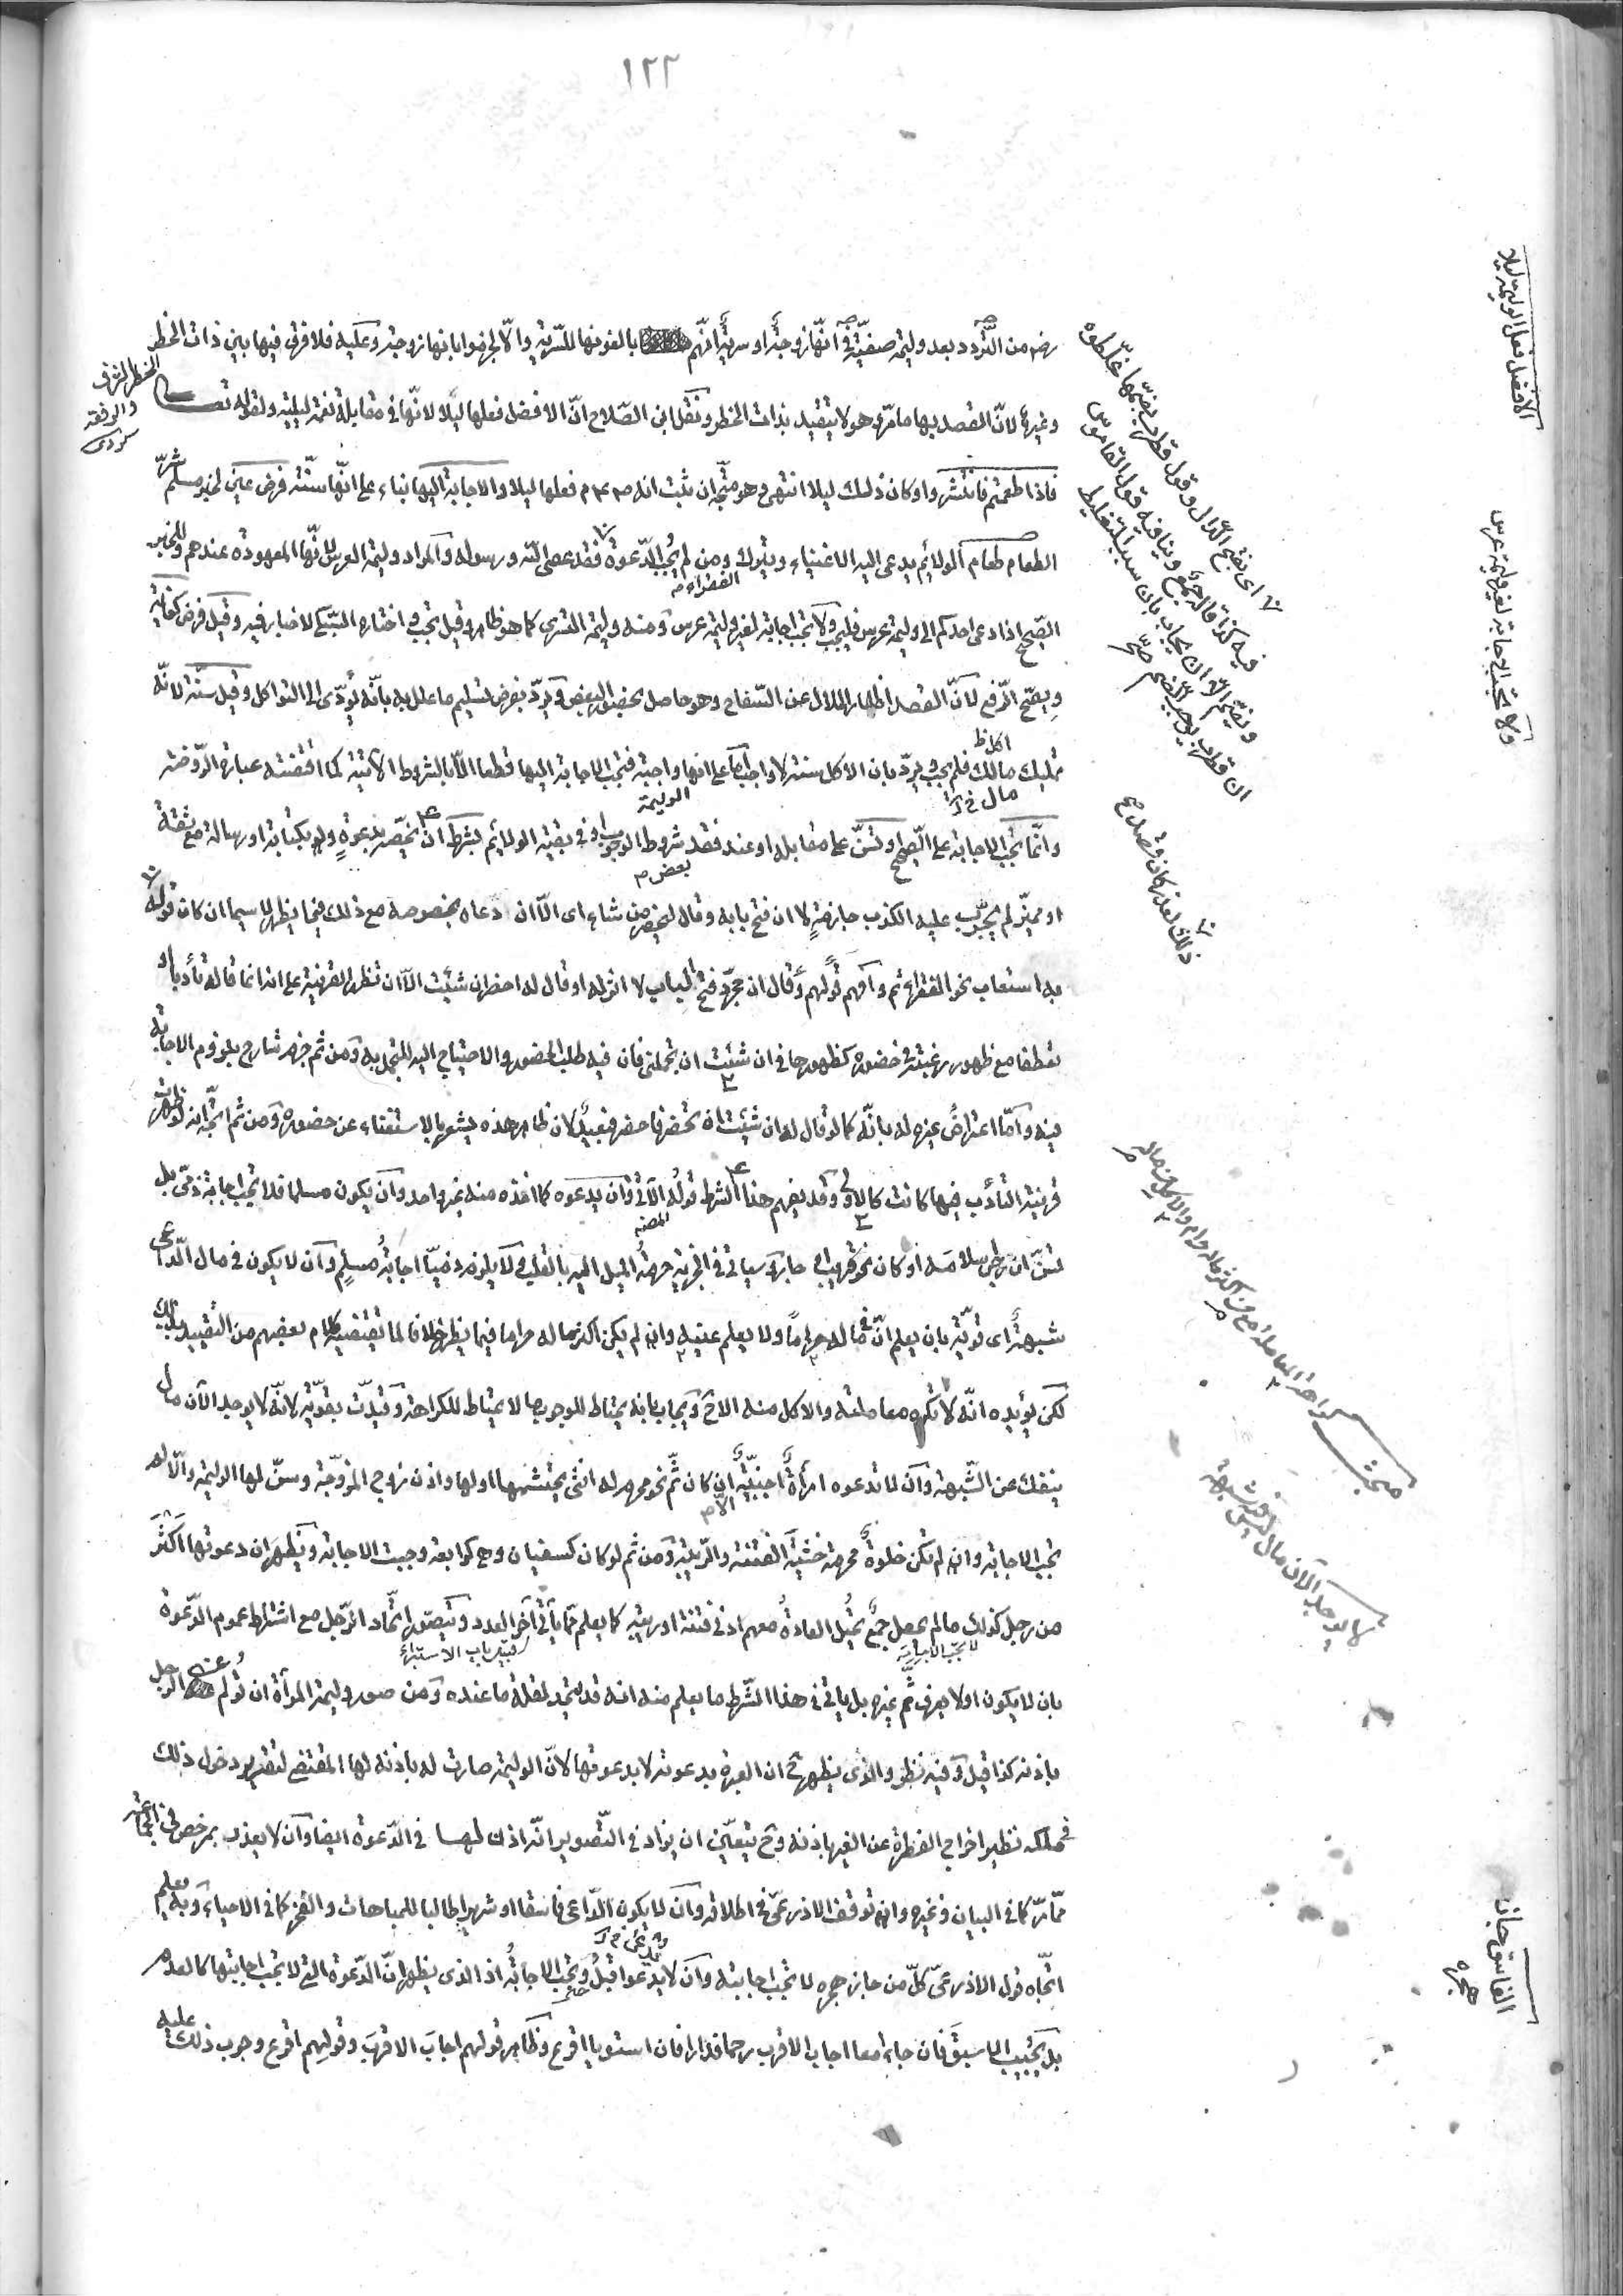 ١٢٢
رضه من التّردد بعد وليمة صفيّة في انّها زوجة او سرية انّهم بالفونها للسّرية والّا لجزموا بانها زوجة وعليه فلا فرق فيها بين ذات الخطر
وغيرها لانّ القصد بها ما مرّ وهو لا يتقيد بذات الخطر ونقل ابن الصّلاح انّ الافضل فعلها ليلا لانّها في مقابلة نعمة ليلية ولقوله تعـــالى
فاذا طعمتم فانتشروا وكان ذلك ليلا انتهى وهو متّجه ان ثبت انه صم فعلها ليلا والاجابة اليها بناء على انّها سنّته فرض عين لخبر مسلم شرّ
الطعام طعام الولائم يدعى اليه الاغنياء ويترك الفقراء ومن لم يجب الدّعوة فقد عصى الله ورسوله والمراد وليمة العرس لانّها المعهودة عندهم وللخبر
الصّحيح اذا دعى احدكم الى وليمة عرس فليجب ولا تجب اجابة لغير وليمة عرس ومنه وليمة التسرى كما هو ظاهر وقيل تجب واختاره السّبكي لاخبار فيه وقيل فرض كفاية
ويصحّ الرّفع لانّ القصد اظهار الحلال عن السّفاح وهو حاصل بحضور البعض ويردّ بفرض تسليم ما علل به بانّه يؤدّى الى التواكل وقيل سنّة لانّه
تمليك مال فلم يجب ويردّ بان الاكل سنة لا واجب اما على انها واجبة فتجب الاجابة اليها قطعا الّا بالشروط الآتية كما اقتضته عبارة الرّوضة
وانّما تجب الاجابة على الصّحيح او تسنّ على مقابله او عند فقد بعض شروط الوجوب او في بقية الولائم بشرط ان يخصّه بدعوةٍ ولو بكتابة او رسالة مع ثقة
او مميّز لم يجرّب عليه الكذب جازمةٍ لا ان فتح بابه وقال ليحضر من شاء اى الّا ان دعاه بخصوصه مع ذلك فيما يظهر لا سيما ان كان قوله
به استعاب نحو الفقراء ثم وافهم قولهم وقال ان مجرّد فتح الباب لا اثر له او قال له احضر ان شئت الّا ان تظهر القرينة على انه انما قاله تأدبا او
تعطفا مع ظهور رغبته في حضوره كظهورها في ان شئت ان تجملني فان فيه طلب الحضور والاحتياج اليه للتجمل به ومن ثم جزم شارح بلزوم الاجابة
فيه وامّا اعتراضُ غيره له بانّه كما لو قال له ان شئت ان تحضر فاحضر فبعيدٌ لان ظاهر هذه يشعر بالاستغناء عن حضوره ومن ثم اتّجه انه لو ظهرت
قرينة التأدب فيها كانت كالاولى وقد يفهم هذا الشرط قولُه الآتي وان يدعوه كما اخذه منه غير واحد وان يكون مسلما فلا تجب اجابة ذمّي بل
تسنّ ان رجى اسلامه او كان نحو قريب او جار وسيأتى في الجزية حرمةُ الميل اليه بالقلب ولا يلزم ذميّا اجابةُ مسلمٍ وان لا يكون في مال الدّاعى
شبهةٌ اى قويّة بان يعلم انّ في ماله حراماً ولا يعلم عينه وان لم يكن اكثر ماله حراما فيما يظهر خلافا لما يقتضيه كلام بعضهم من التقييد بذلك
لكن يؤيده انّه لا تكره معاملته والاكل منه الا ح ويجاب بانه يحتاط للوجوب ما لا يحتاط للكراهة وقيّدت بقويّة لانّه لا يوجد الآن مالٌ
ينفك عن الشّبهة وان لا تدعوه امرأةٌ اجنبيّةٌ الّا ان كان ثَمّ نحو محرم له انثى يحتشمها او لها واذن زوج المزوّجة وسنّ لها الوليمة والّا لم
تجب الاجابة وان لم تكن خلوةٌ محرمة خشيةَ الفتنة والرّيبة ومن ثم لو كان كسفيان وهى كرابعة وجبت الاجابة ويظهر ان دعوتها اكثرَ
من رجل كذلك ما لم يحصل جمعٌ تحيل العادةُ معهم ادنى فتنة او ريبة كما يعلم ممّا يأتى آخر العدد ويتصوّر اتّحاد الرّجل مع اشتراط عموم الدّعوة
بان لا يكون او لا يعرف ثمّ غيره بل يأتى في هذا الشّرط ما يعلم منه انه قد يتحد لقلة ما عنده ومن صور وليمة المرأة ان تولم عن الرجل
باذنه كذا قيل وفيه نظر والذى يظهر ح ان العبرة بدعوته لا بدعوتها لانّ الوليمة صارت له باذنه لها المقتضى لتقدير دخول ذلك
في ملكه نظير اخراج الفطرة عن الغير باذنه وح يتعيّن ان يزاد في التّصوير انّه اذن لهــا في الدّعوة ايضا وان لا يعذر بمرخص في الجماعة
ممّا مرّ كما في البيان وغيره وان توقف الاذرعىّ في اطلاقه وان لا يكون الدّاعى فاسقا او شريرا طالبا للمباهات والفخر كما في الاحياء وبه يعلم
اتّجاه قول الاذرعىّ كلّ من جاز هجره لا تجب اجابته وان لا يدعوا قبلُ وتجب الاجابةُ اذ الذى يظهر انّ الدّعوة التى لا تجب اجابتها كالعدم
بل يجيب الاسبقَ فان جاءا معا اجاب الاقرب رحما فدارا فان استويا اقرع وظاهر قولهم اجابَ الاقربَ وقولهم اقرع وجوب ذلك عليه
الخطر الشرف والرفعة كردى
الافضل فعل الوليمة ليلا
ولا تجب الاجابة لغير وليمة عرس
اى بفتح الدّال وقول قطرب بضمّها غلّطوه
ذلك لعذر كان قصد
لا يوجد الآن مال ليس فيه شبهة
الفاسق جاز هجره